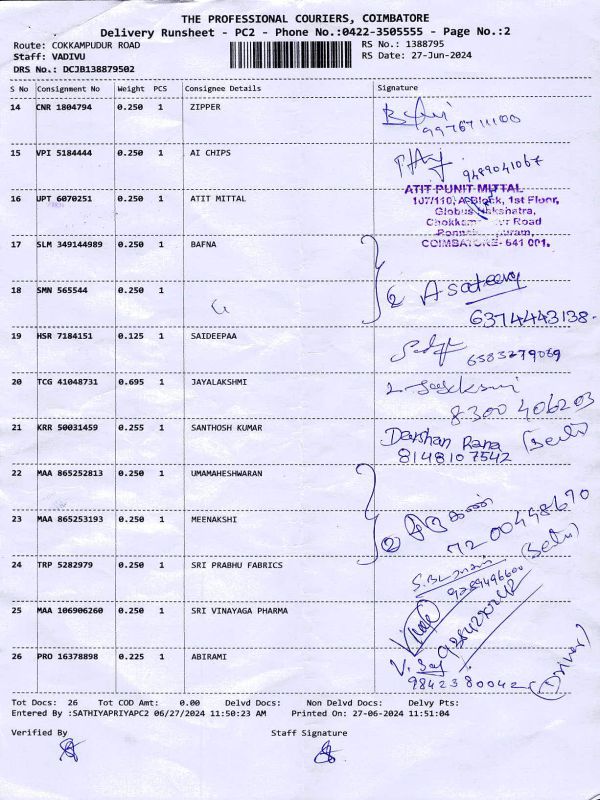 THE PROFESSIONAL COURIERS, COIMBATORE
Delivery Runsheet - PC2 - Phone No.:0422-3505555 - Page No.:2
Route: COKKAMPUDUR ROAD RS No.: 1388795
Staff: VADIVU RS Date: 27-Jun-2024
DRS No.: DCJB138879502
S No Consignment No Weight PCS Consignee Details Signature
14 CNR 1804794 0.250 1 ZIPPER
9976711100
15 VPI 5184444 0.250 1 AI CHIPS
9489041067
16 UPT 6070251 0.250 1 ATIT MITTAL
ATIT PUNIT MITTAL
107/110, A Block, 1st Floor,
Globus Nakshatra,
Road
COIMBATORE- 641 001.
17 SLM 349144989 0.250 1 BAFNA
18 SMN 565544 0.250 1
2 A Sateesy
6374443138-
19 HSR 7184151 0.125 1 SAIDEEPAA
6583279069
20 TCG 41048731 0.695 1 JAYALAKSHMI
8300406203
21 KRR 50031459 0.255 1 SANTHOSH KUMAR
Darshan Rana
8148107542
22 MAA 865252813 0.250 1 UMAMAHESHWARAN
23 MAA 865253193 0.250 1 MEENAKSHI
2
7200498670
24 TRP 5282979 0.250 1 SRI PRABHU FABRICS
9289496600
25 MAA 106906260 0.250 1 SRI VINAYAGA PHARMA
9384270242
26 PRO 16378898 0.225 1 ABIRAMI
9842380042 (Driver)
Tot Docs: 26 Tot COD Amt: 0.00 Delvd Docs: Non Delvd Docs: Delvy Pts:
Entered By :SATHIYAPRIYAPC2 06/27/2024 11:50:23 AM Printed On: 27-06-2024 11:51:04
Verified By Staff Signature